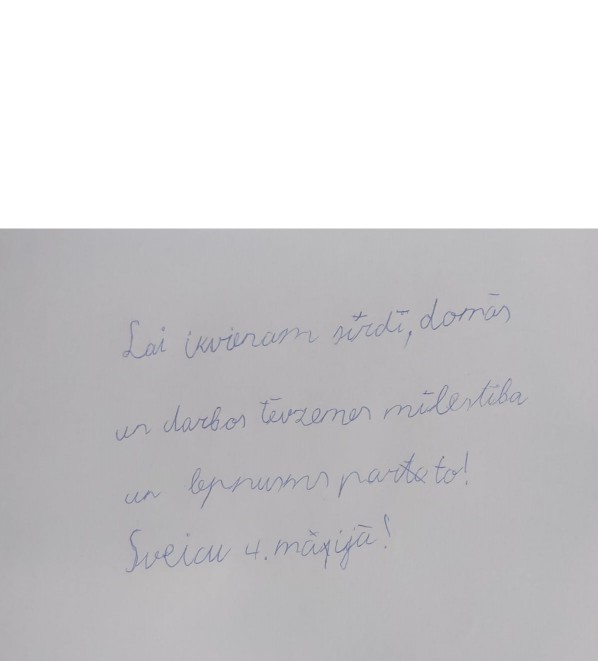 Lai ikvienam sirdī, domās
un darbos tēvzemes mīlestība
un lepnums par to!
Sveicu 4. maijā!